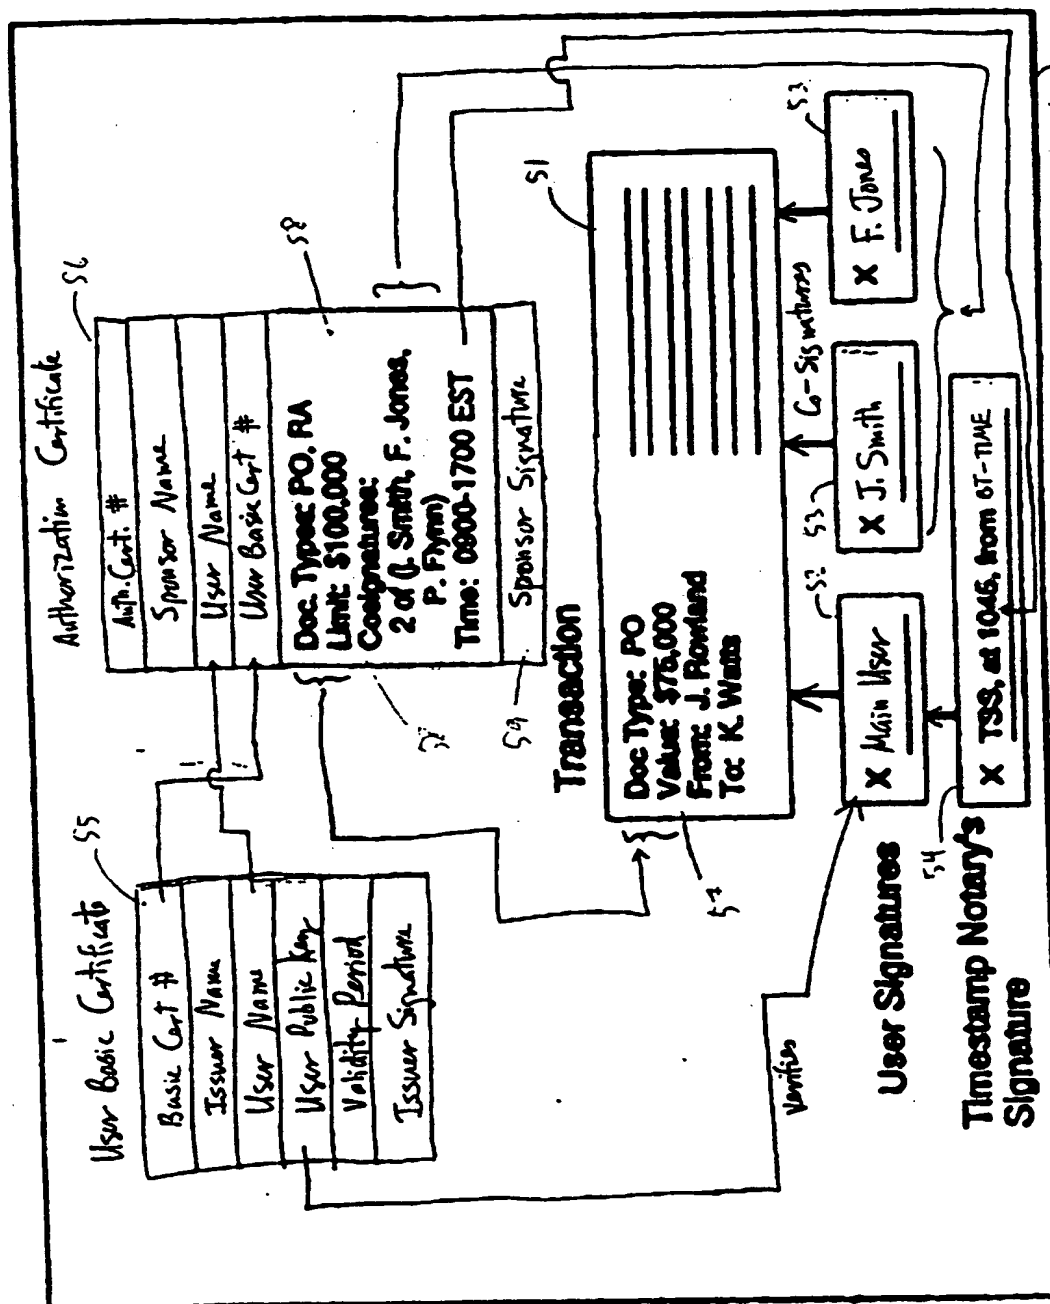 User Basic Certificate
55
Basic Cert #
Issuer Name
User Name
User Public Key
Validity Period
Issuer Signature
Authorization Certificate
56
Auth. Cert. #
Sponsor Name
User Name
User Basic Cert #
Doc. Types: PO, RA
Limit: $100,000
Cosignatures:
2 of (J. Smith, F. Jones,
P. Flynn)
Time: 0900-1700 EST
58
58
Sponsor Signature
59
Transaction
51
Doc Type: PO
Value: $75,000
From: J. Rowland
To: K. Watts
57
Verifies
User Signatures
X Main User
52
Co-Signatures
X J. Smith
53
X F. Jones
53
Timestamp Notary's
Signature
54
X TSS, at 1046, from BT-TIME